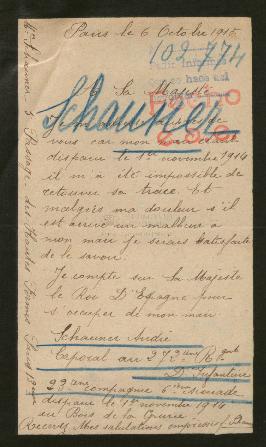 Paris le 6 Octobre 1915
109.774
A Sa Majesté
Schauner
vous car mon mari
disparu le 1er novembre 1914
il m'a été impossible de
retrouver sa trace. Et
malgrès ma douleur s'il
est arrivé un malheur a
mon mari je serais satisfaite
de le savoir.
Je compte sur Sa Majesté
le Roi D'Espagne pour
s'occuper de mon mari
Schauner André
Caporal au 372eme Regnt
D'Infanterie
23eme compagnie 6eme
disparu le 1er novembre 1914
au Bois de la Grurie
Recevez Mes salutations empressées
Mme Schauner 5 Passage des